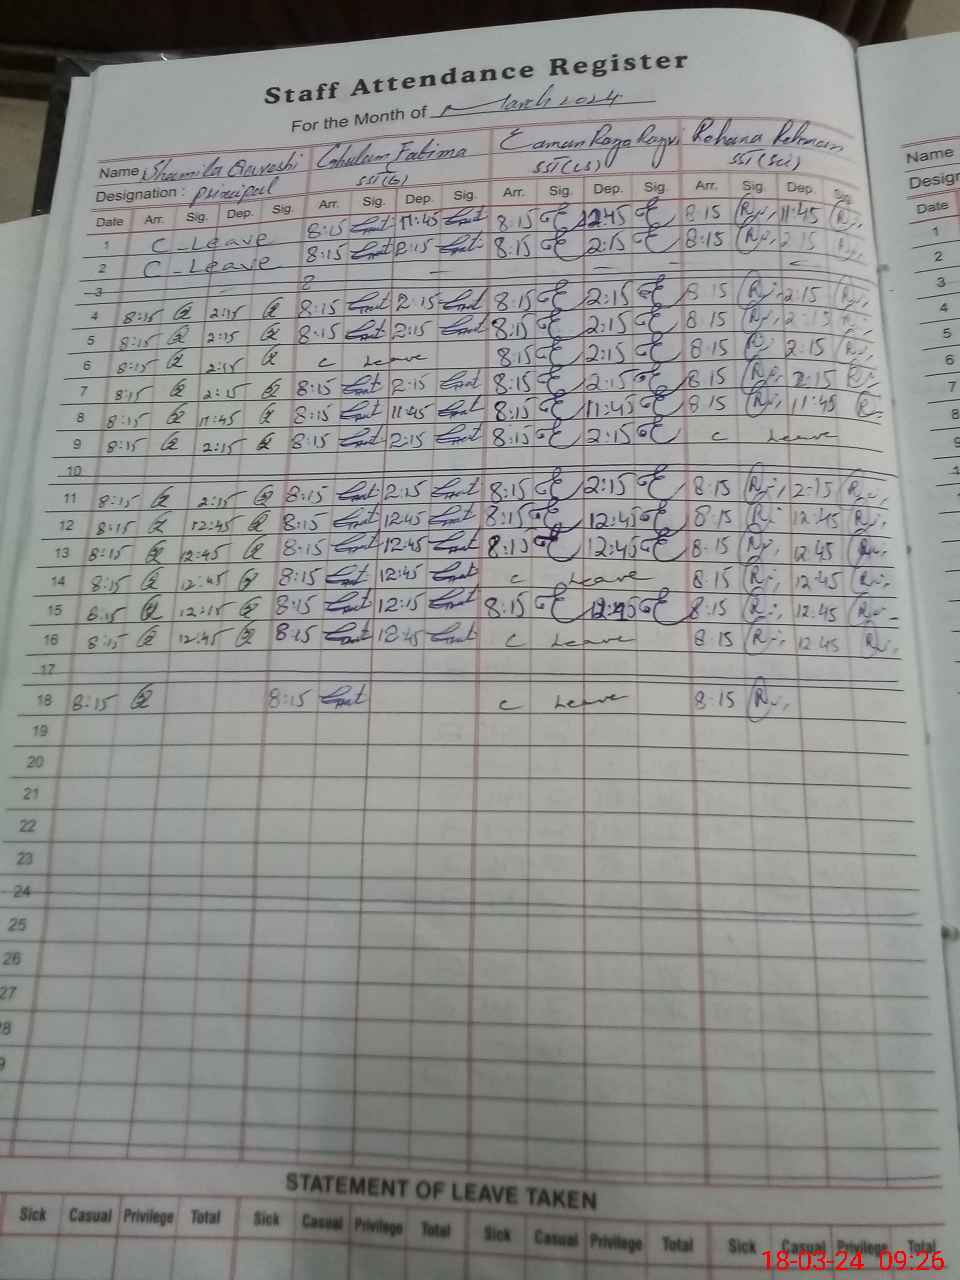 Staff Attendance Register
For the Month of March 2024
Name Shamila Ghulam Fatima Raza Rehana Rehman Name
Designation : Principal SST(G) SST(CS) SST(Sci) Design
Date Arr. Sig. Dep. Sig. Arr. Sig. Dep. Sig. Arr. Sig. Dep. Sig. Arr. Sig. Dep. Sig. Date
1 C-Leave 8:15 11:45 8:15 8:15 11:45 1
2 C-Leave 8:15 2:15 8:15 2:15 8:15 2:15 2
3 3
4 8:15 2:15 8:15 2:15 8:15 2:15 8:15 2:15 4
5 8:15 2:15 8:15 2:15 8:15 2:15 8:15 2:15 5
6 8:15 2:15 C Leave 8:15 2:15 8:15 2:15 6
7 8:15 2:15 8:15 2:15 8:15 2:15 8:15 2:15 7
8 8:15 11:45 8:15 11:45 8:15 11:45 8:15 11:45 8
9 8:15 2:15 8:15 2:15 8:15 2:15 C Leave 9
10
11 8:15 2:15 8:15 2:15 8:15 2:15 8:15 2:15
12 8:15 12:45 8:15 12:45 8:15 12:45 8:15 12:45
13 8:15 12:45 8:15 12:45 8:15 12:45 8:15 12:45
14 8:15 12:45 8:15 12:45 C Leave 8:15 12:45
15 8:15 12:15 8:15 12:15 8:15 8:15 12:45
16 8:15 12:45 8:15 C Leave 8:15 12:45
17
18 8:15 8:15 C Leave 8:15
19
20
21
22
23
24
25
26
27
STATEMENT OF LEAVE TAKEN
Sick Casual Privilege Total Sick Casual Privilege Total Sick Casual Privilege Total Sick Casual Privilege Total
18-03-24 09:26